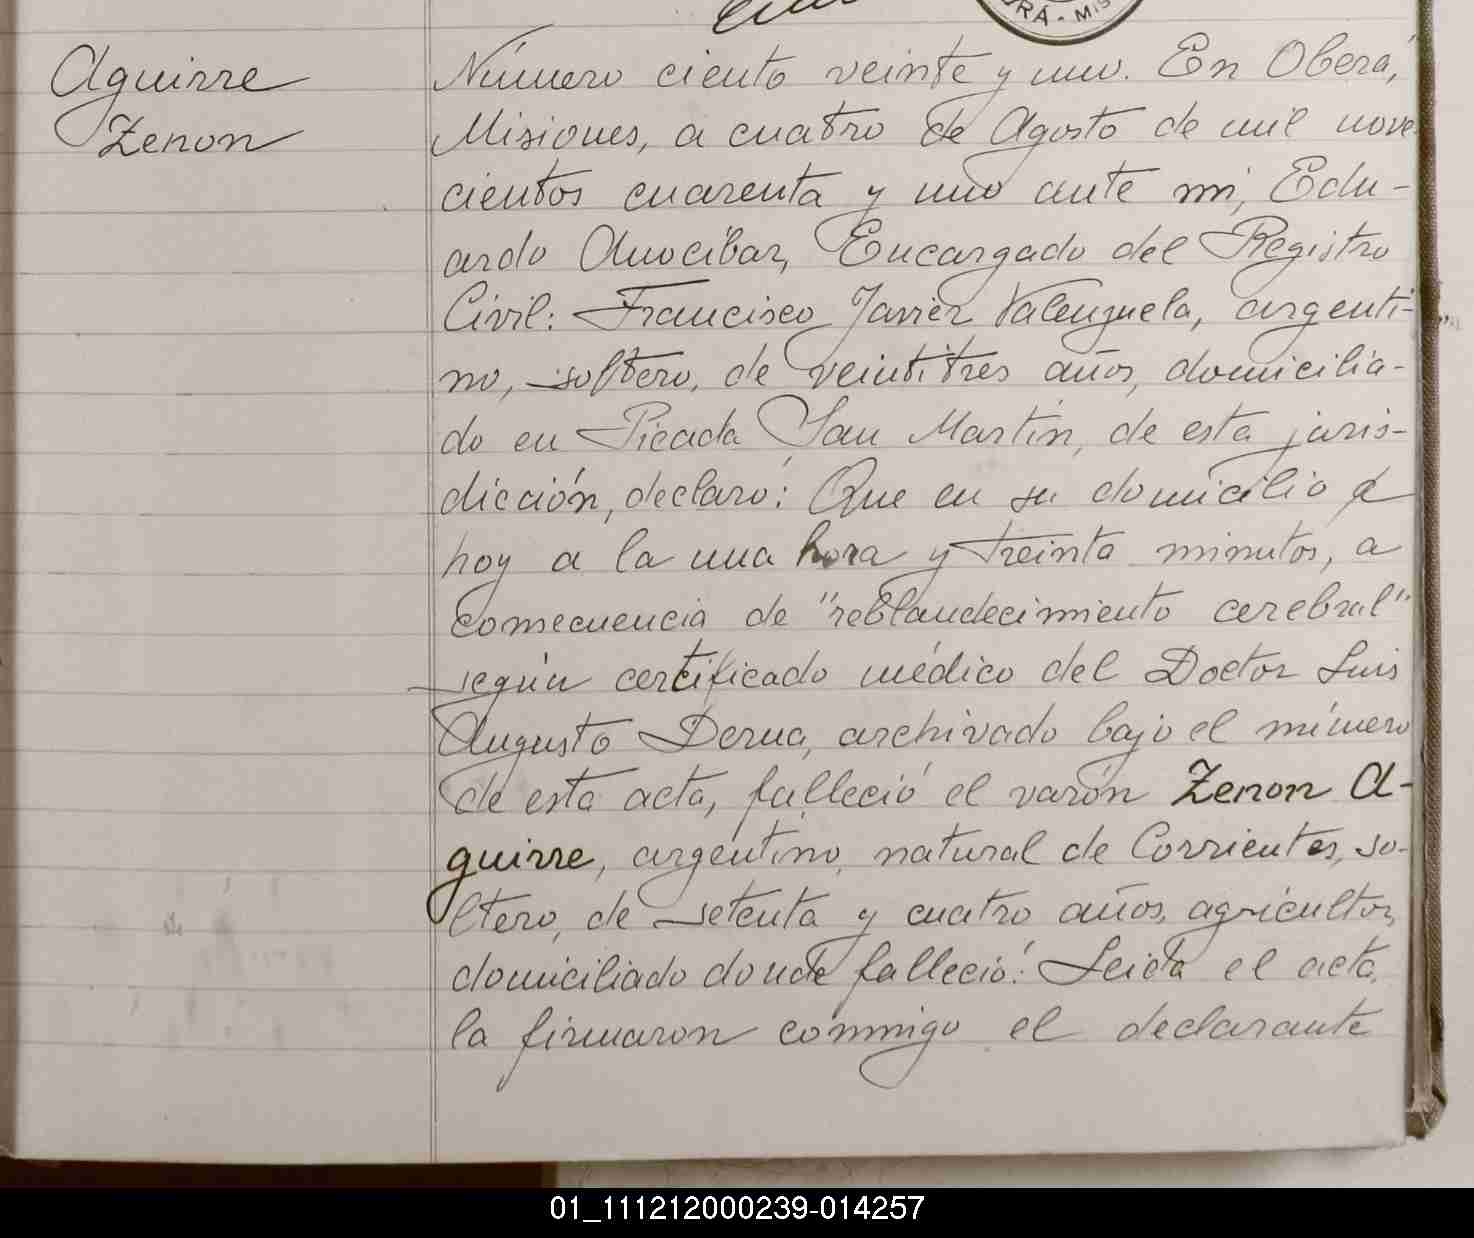 RÁ - MIS
Aguirre
Zenon
Número ciento veinte y uno. En Oberá,
Misiones, a cuatro de Agosto de mil nove
cientos cuarenta y uno ante mi, Edu-
ardo Anocibar, Encargado del Registro
Civil: Francisco Javier Valenzuela, argenti-
no, soltero, de veintitres años, domicilia-
do en Picada San Martín, de esta juris-
dicción, declaró: Que en su domicilio
hoy a la una hora y treinta minutos, a
consecuencia de "reblandecimiento cerebral"
según certificado médico del Doctor Luis
Augusto Derna, archivado bajo el número
de esta acta, falleció el varón Zenon A-
guirre, argentino, natural de Corrientes, so-
ltero, de setenta y cuatro años, agricultor,
domiciliado donde falleció: Leida el acta,
la firmaron conmigo el declarante
01_111212000239-014257